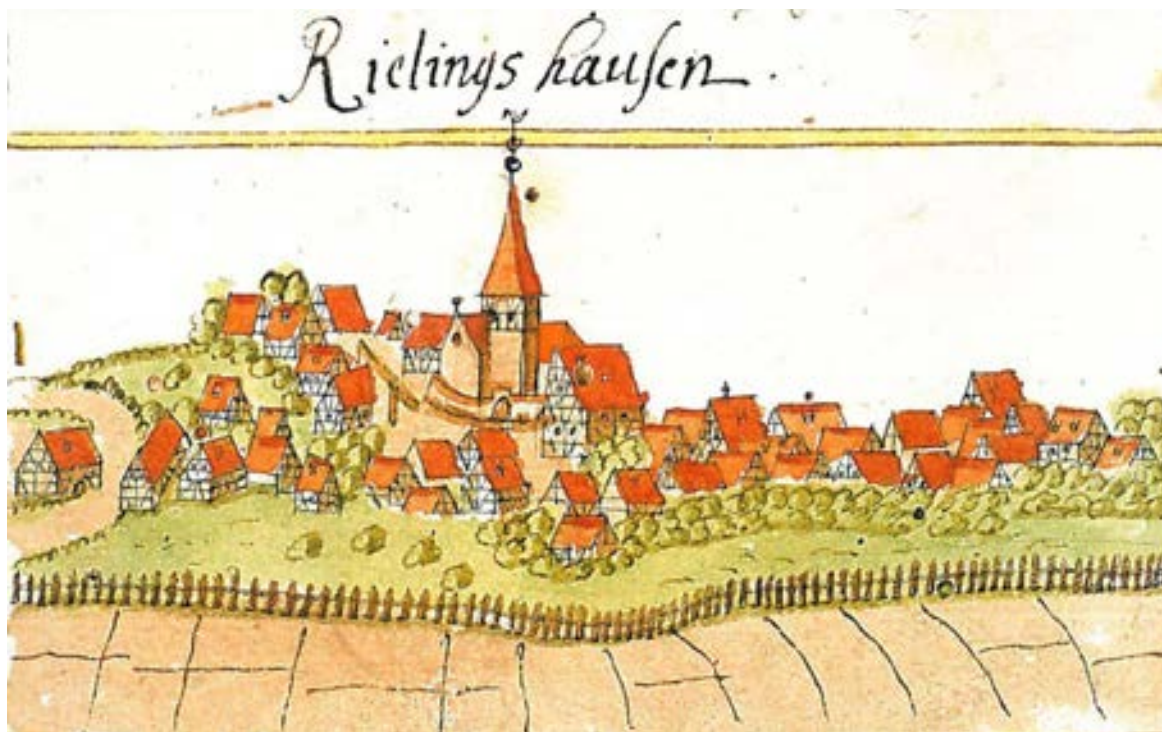 Rielingshauſen.